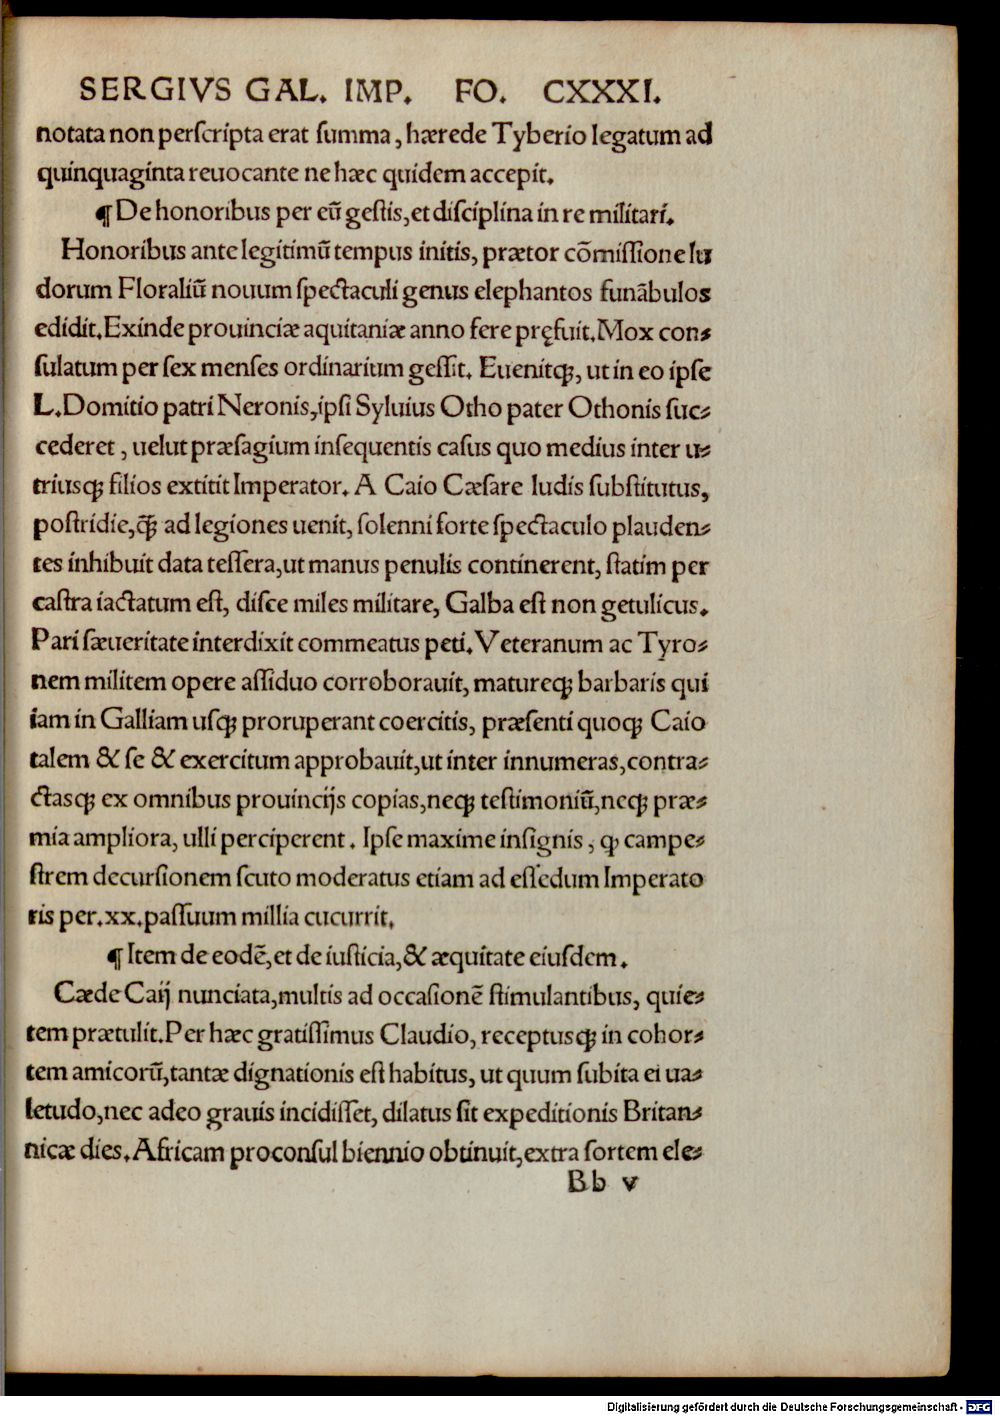 SERGIVS GAL. IMP. FO. CXXXI.
notata non perſcripta erat ſumma, hærede Tyberio legatum ad
quinquaginta reuocante ne hæc quidem accepit.
¶ De honoribus per eū geſtis, et diſciplina in re militari.
Honoribus ante legitimū tempus initis, prætor cōmiſſione lu
dorum Floraliū nouum ſpectaculi genus elephantos funābulos
edidit. Exinde prouinciæ aquitaniæ anno fere pręfuit. Mox con⸗
ſulatum per ſex menſes ordinarium geſſit. Euenitqꝫ, ut in eo ipſe
L. Domitio patri Neronis, ipſi Syluius Otho pater Othonis ſuc⸗
cederet, uelut præſagium inſequentis caſus quo medius inter u⸗
triusqꝫ filios extitit Imperator. A Caio Cæſare ludis ſubſtitutus,
poſtridie, q̄ꝫ ad legiones uenit, ſolenni forte ſpectaculo plauden⸗
tes inhibuit data teſſera, ut manus penulis continerent, ſtatim per
caſtra iactatum eſt, diſce miles militare, Galba eſt non getulicus.
Pari ſæueritate interdixit commeatus peti. Veteranum ac Tyro⸗
nem militem opere aſſiduo corroborauit, matureqꝫ barbaris qui
iam in Galliam uſqꝫ proruperant coercitis, præſenti quoqꝫ Caio
talem & ſe & exercitum approbauit, ut inter innumeras, contra⸗
ctasqꝫ ex omnibus prouincijs copias, neqꝫ teſtimoniū, neqꝫ præ⸗
mia ampliora, ulli perciperent. Ipſe maxime inſignis, ꝙ campe⸗
ſtrem decurſionem ſcuto moderatus etiam ad eſſedum Imperato
ris per. xx. paſſuum millia cucurrit.
¶ Item de eodē, et de iuſticia, & æquitate eiuſdem.
Cæde Caij nunciata, multis ad occaſionē ſtimulantibus, quie⸗
tem prætulit. Per hæc gratiſſimus Claudio, receptusqꝫ in cohor⸗
tem amicorū, tantæ dignationis eſt habitus, ut quum ſubita ei ua⸗
letudo, nec adeo grauis incidiſſet, dilatus ſit expeditionis Britan⸗
nicæ dies. Africam proconſul biennio obtinuit, extra ſortem ele⸗
Bb v
Digitalisierung gefördert durch die Deutsche Forschungsgemeinschaft - DFG